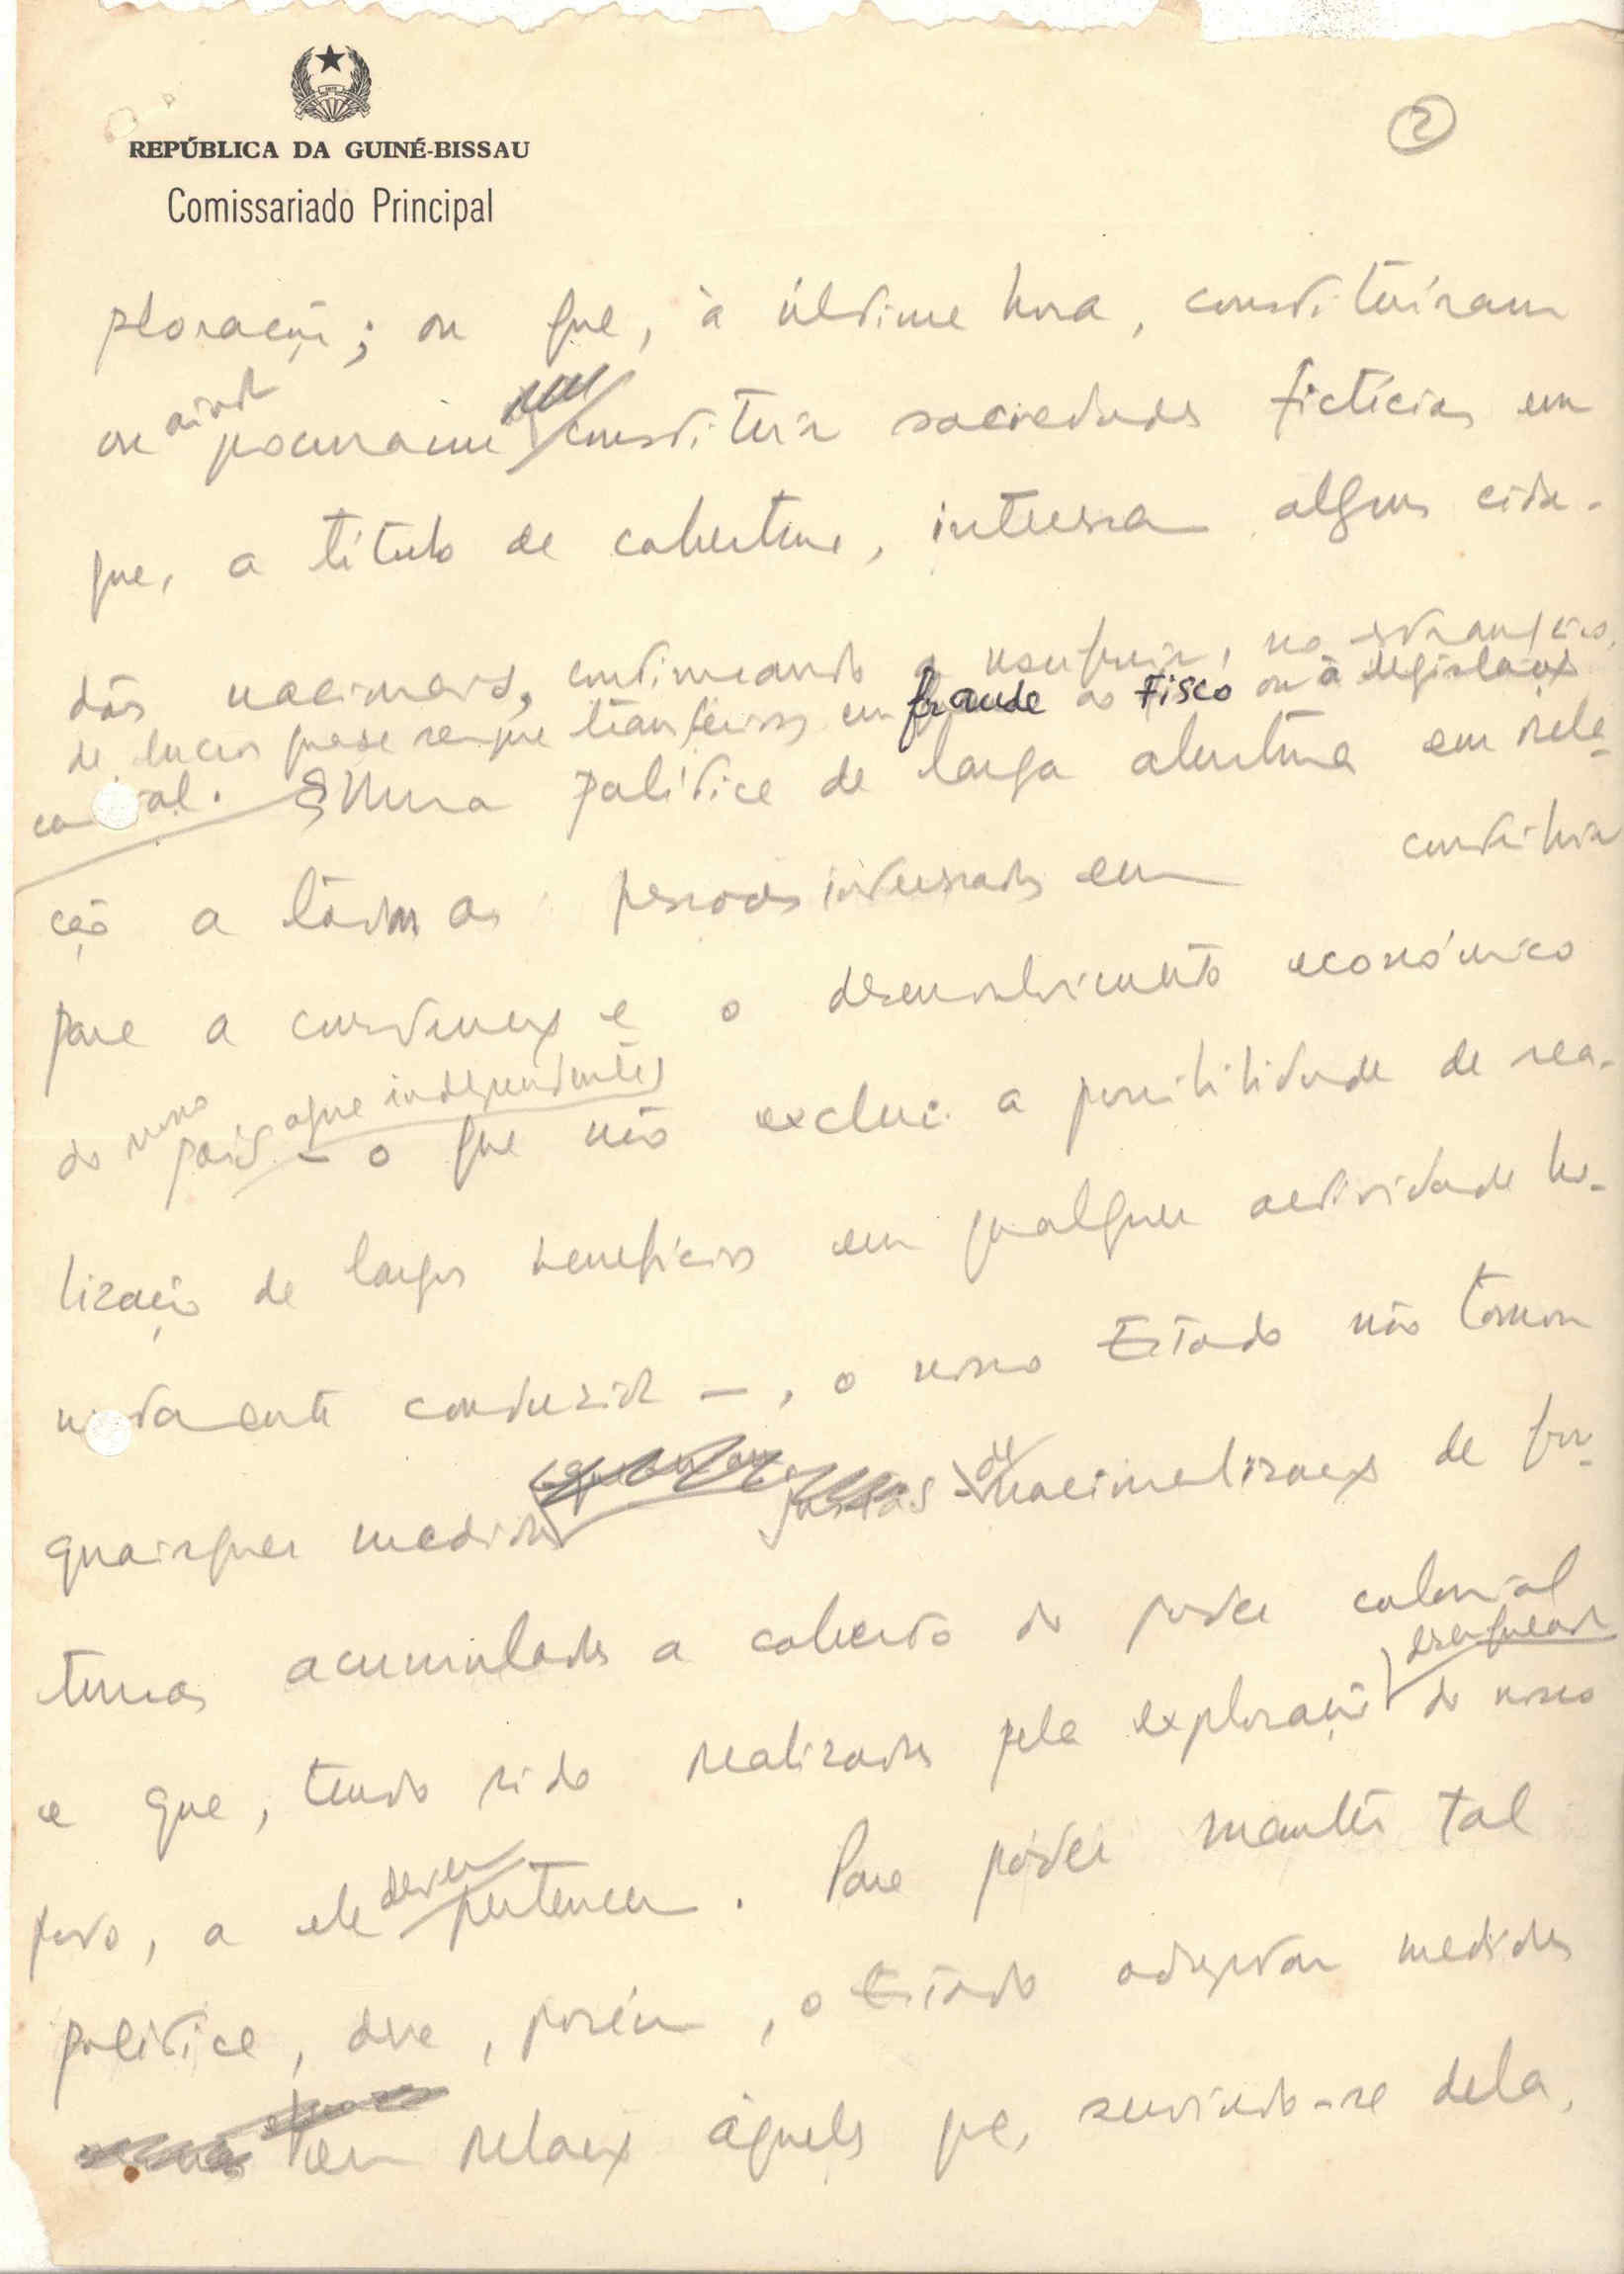 REPÚBLICA DA GUINÉ-BISSAU
Comissariado Principal
2
ploração; ou que, à última hora, constituíram
ou ainda procuraram constituir sociedades fictícias em
que, a título de cobertura, interessam alguns cida-
dãos nacionais, continuando a usufruir, no estrangeiro,
de lucros quase sempre transferidos em fraude ao Fisco ou à legislação
cambial. § Numa política de larga abertura em rela-
ção a todas as pessoas interessadas em contribuir
para a construção e o desenvolvimento económico
do novo país agora independente,
– o que não exclui a possibilidade de rea-
lização de largos benefícios em qualquer actividade ho-
nestamente conduzida –, o nosso Estado não tomou
quaisquer medidas justas de nacionalização de for-
tunas acumuladas a coberto do poder colonial
e que, tendo sido realizadas pela exploração desenfreada do nosso
povo, a ele devem pertencer. Para poder manter tal
política, deve, porém, o Estado adoptar medidas
em relação àqueles que, servindo-se dela,